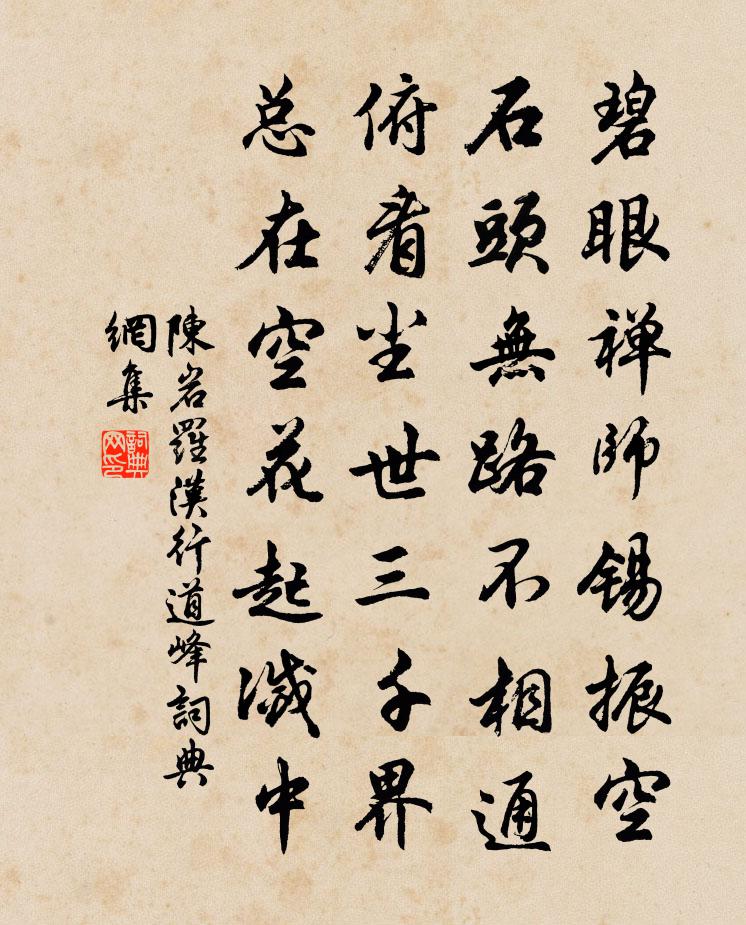 碧眼禅師錫振空
石頭無路不相通
俯看尘世三千界
总在空花起滅中
陳岩羅漢行道峰詞典
網集
詞典
网印